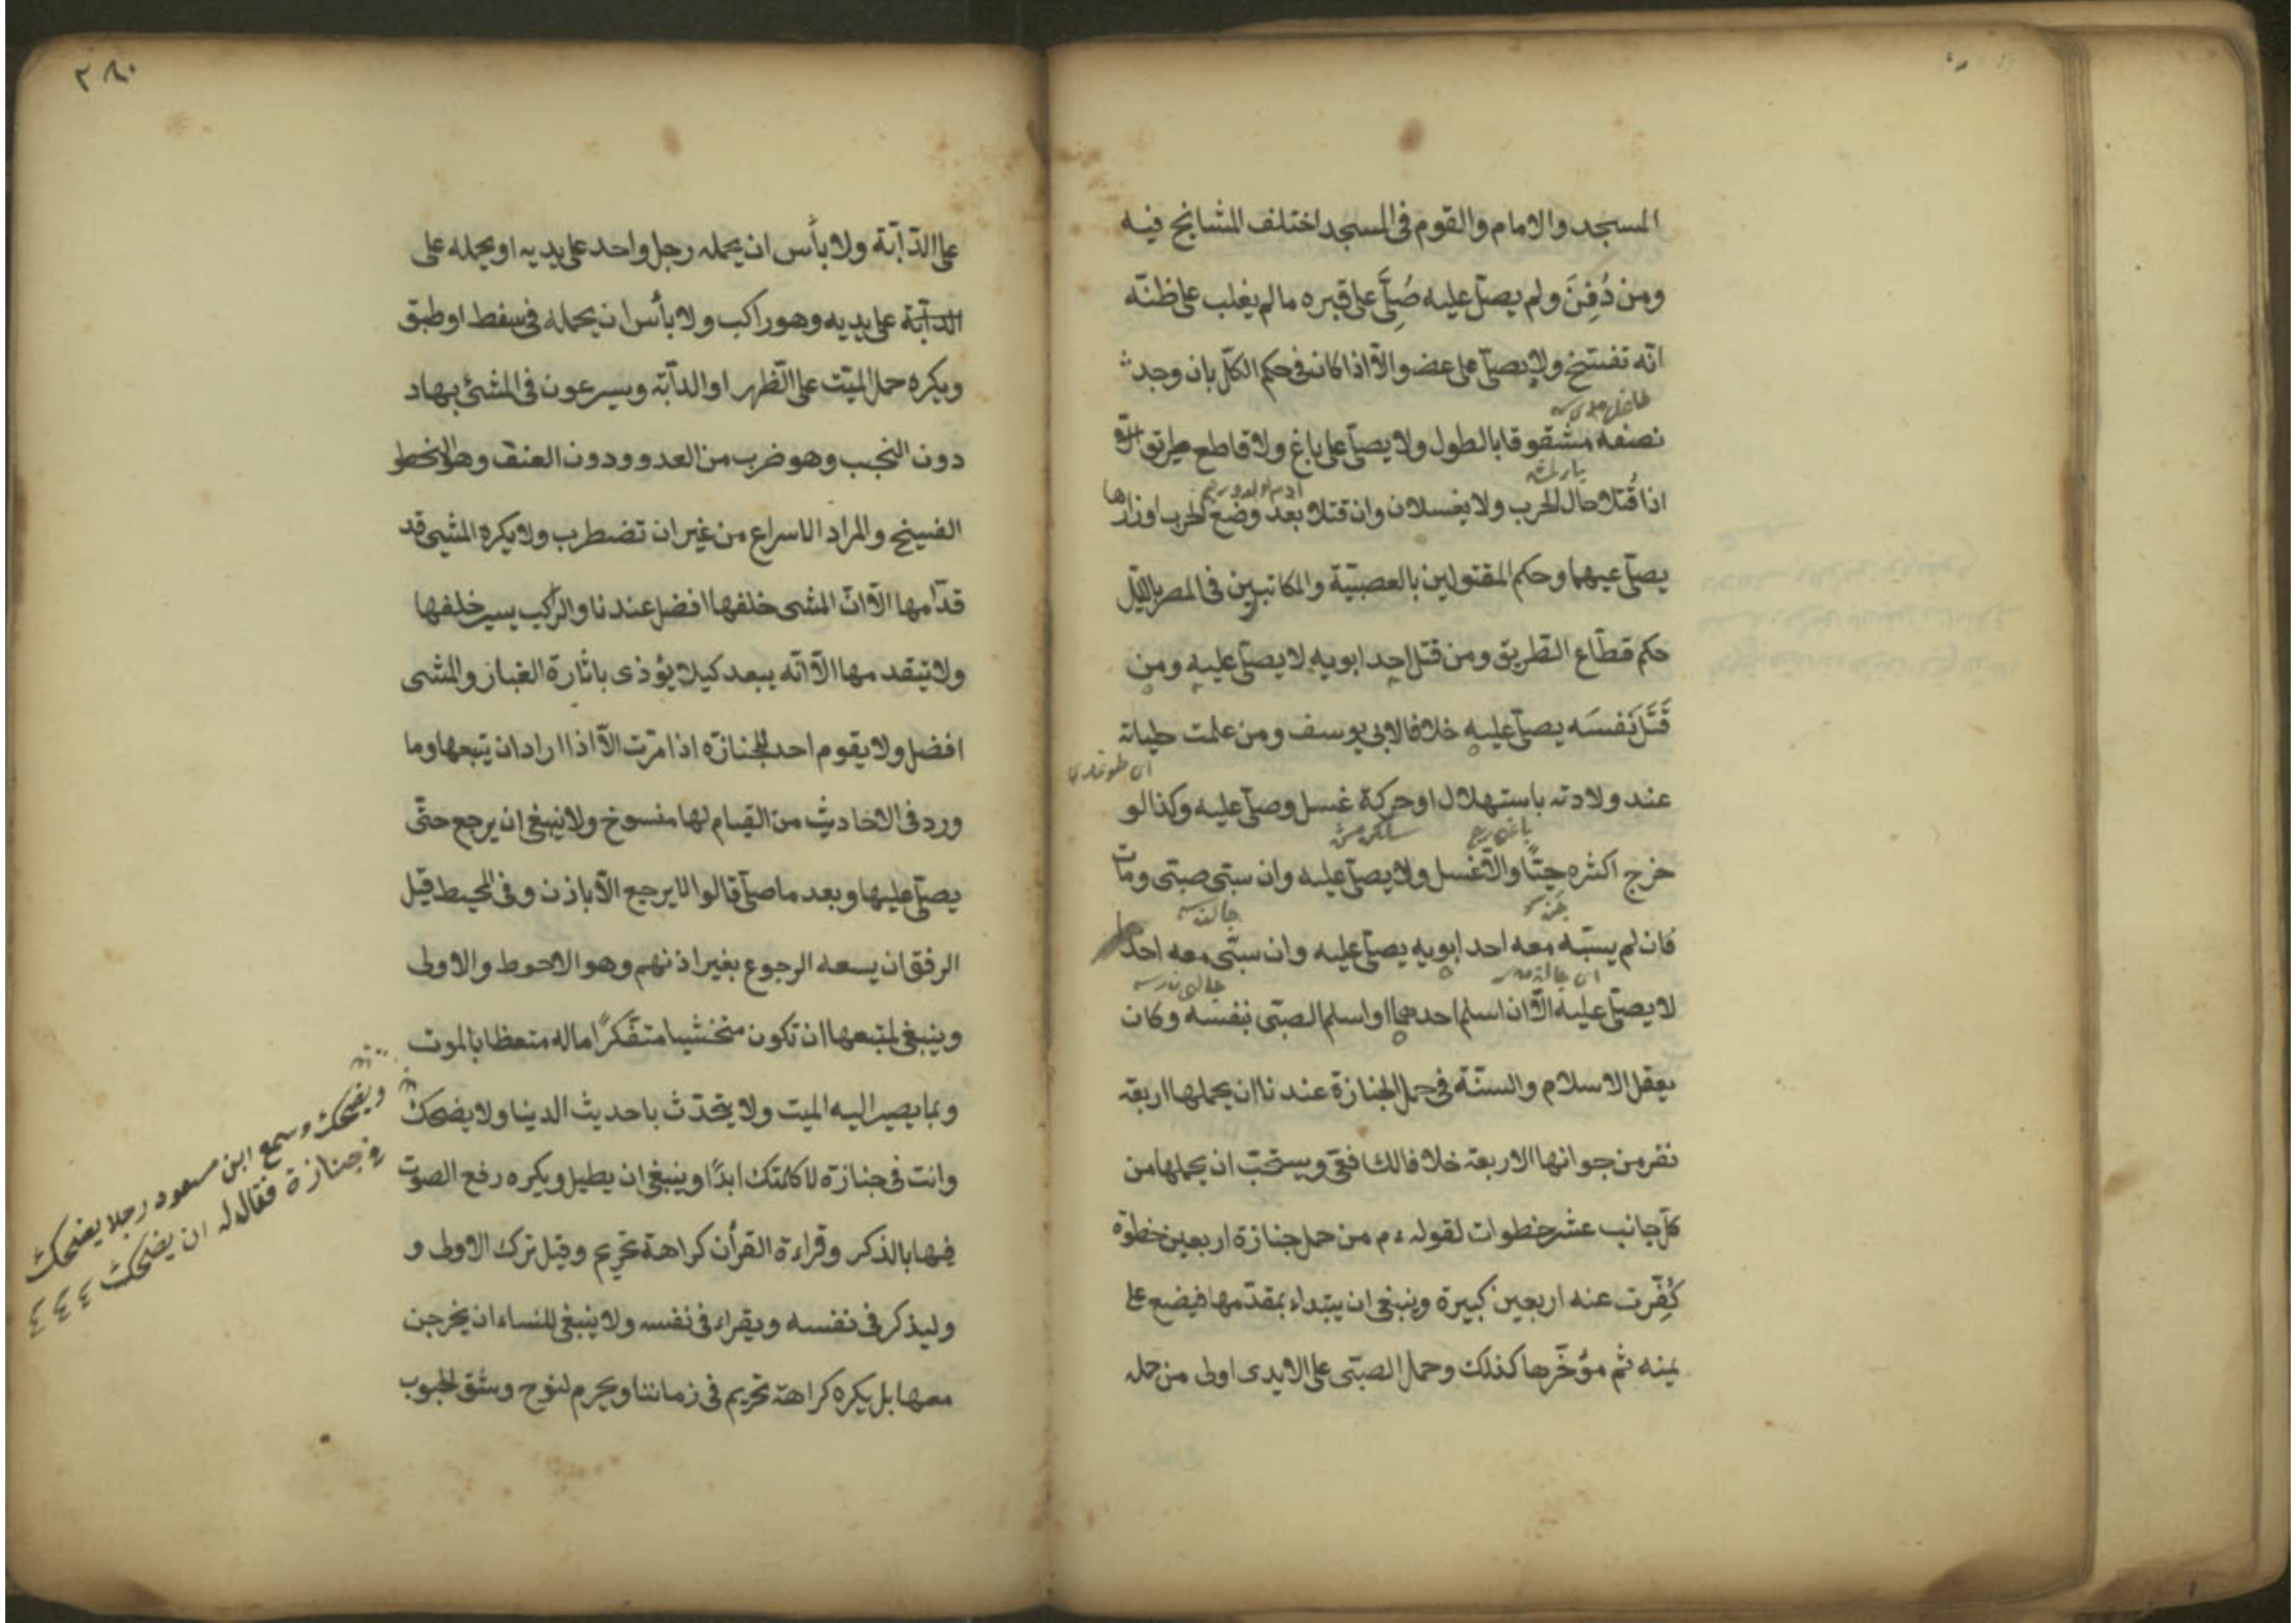 المسجد والامام والقوم فى المسجد اختلف المشايخ فيه
ومن دُفِنَ ولم يصلّ عليه صُلِّىَ على قبره مالم يغلب على ظنّه
انّه تفسّخ ولا يصلّى على عضو الّا اذا كان فى حكم الكلّ بان وجد
نصفه مشقوقا بالطول ولا يصلّى على باغ ولا قاطع طريق
اذا قُتلا حال الحرب ولا يغسلان وان قتلا بعد وضع الحرب اوزارها
يصلّى عليهما وحكم المقتولين بالعصبيّة والمكابرين فى المصر بالليل
حكم قطّاع الطّريق ومن قتل احد ابويه لا يصلّى عليه ومن
قَتَلَ نَفسَه يصلّى عليه خلافا لابى يوسف ومن علمت حياته
عند ولادته باستهلال او حركة غسل وصلّى عليه وكذا لو
خرج اكثره حيّا والّا غسل ولا يصلّى عليه وان سبى صبّى ومات
فان لم يسبّ معه احد ابويه يصلّى عليه وان سبّى معه احدهما
لا يصلّى عليه الّا ان اسلم احدهما او اسلم الصبّى بنفسه وكان
يعقل الاسلام والسنّة فى حمل الجنازة عندنا ان يحملها اربعة
نفر من جوانبها الاربعة خلافا لشافعى ويستحبّ ان يحملها من
كلّ جانب عشر خطوات لقوله ءم من حمل جنازة اربعين خطوة
كُفِّرت عنه اربعين كبيرة وينبغى ان يبتداء بمقدّمها فيضع على
يمينه ثم مؤخّرها كذلك وحمل الصبّى على الايدى اولى من حمله
٢٨٠
على الدّابّة ولا بأس ان يحمله رجل واحد على يديه او يحمله على
الدابّة على يديه وهو راكب ولا بأس ان يحمله فى سفط او طبق
ويكره حمل الميّت على الظهر او الدابّة ويسرعون فى المشئ بها
دون النجب وهو ضرب من العدو ودون العنق وهو الخطو
الفسيح والمراد الاسراع من غير ان تضطرب ولا يكره المشى قد
قدّامها الّا انّ المشى خلفها افضل عندنا والراكب يسير خلفها
ولا يتقدمها الّا انّه يبعد كيلا يؤذى باثارة الغبار والمشى
افضل ولا يقوم احد للجنازة اذا مرّت الّا اذا اراد ان يتبعها وما
ورد فى الاحاديث من القيام لها منسوخ ولا ينبغى ان يرجع حتّى
يصلّى عليها وبعد ما صلّى قالوا لا يرجع الّا باذن وفى المحيط قيل
الرفق ان يسعه الرجوع بغير اذنهم وهو الاحوط والاولى
وينبغى لمتبعها ان تكون متخشيا متفكّرًا ماله متعظا بالموت
وبما يصير اليه الميت ولا يتحدّث باحديث الدينا ولا يضحك
وانت فى جنازة لا كلمتك ابدًا وينبغى ان يطيل ويكره رفع الصوت
فيها بالذكر وقراءة القرأن كراهة تحريم وقيل ترك الاولى و
وليذكر فى نفسه ويقراء فى نفسه ولا ينبغى للنساء ان يخرجن
معها بل يكره كراهة تحريم فى زماننا ويحرم لنوح وشق الجيوب
ويضحك وسمع ابن مسعود رجلا يضحك
فى جنازة فقال له ان يضحك